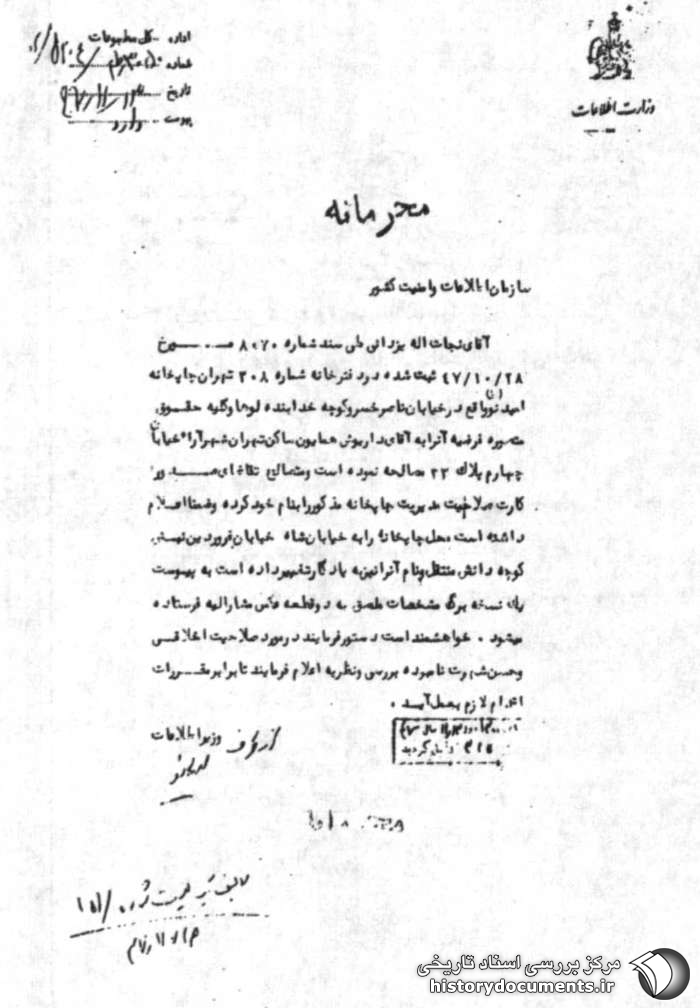 اداره کل مطبوعات
شماره
تاریخ
پیوست دارد
وزارت اطلاعات
محرمانه
سازمان اطلاعات و امنیت کشور
آقای نجات اله یزدانی طی سند شماره ۸۰۷۰ مـــورخ
۴۷/۱۰/۲۸ ثبت شده در دفترخانه شماره ۲۰۸ تهران چاپخانه
امید نو واقع در خیابان ناصر خسرو کوچه خدابنده لوها و کلیه حقـوق
متصوره فرضیه آنرا به آقای داریوش همایون ساکن تهران شهرآرا خیابان
چهارم پلاک ۲۲ مصالحه نموده است و متصالح تقاضای صـدور
کارت صلاحیت مدیریت چاپخانه مذکور را بنام خود کرده و ضمنا اعـلام
داشته است محل چاپخانه را به خیابان شاه خیابان فروردین نبش
کوچه دانش منتقل و نام آنرا نیز به یادگار تغییر داده است به پیوست
یک نسخه برگ مشخصات ملصق به دو قطعه عکس مشارالیه فرستاده
میشود . خواهشمند است دستور فرمایند در مورد صلاحیت اخلاقـی
و حسن شهرت نامبرده بررسی و نظریه اعلام فرمایند تا برابر مقـررات
اقدام لازم بعمل آیـد .
وزیر اطلاعات
از طرف
مرکز بررسی اسناد تاریخی
historydocuments.ir